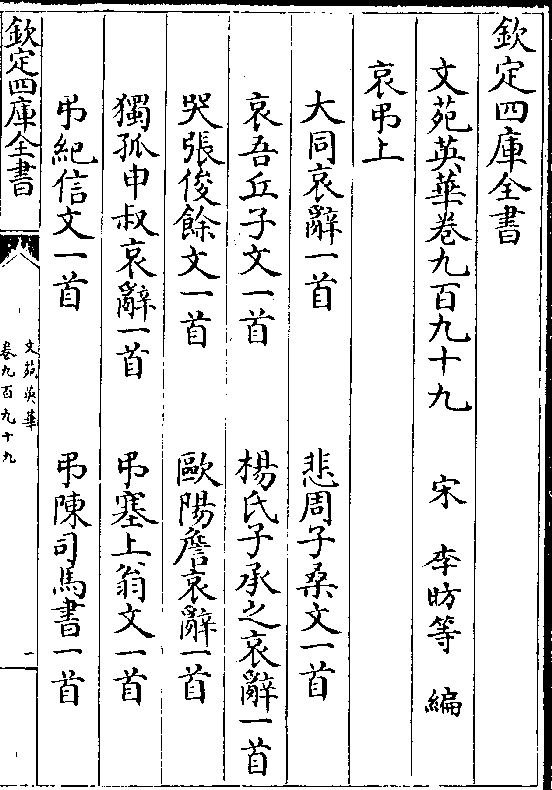 欽定四庫全書
文苑英華卷九百九十九 宋 李昉等 編
哀弔上
大同哀辭一首 悲周子桑文一首
哀吾丘子文一首 楊氏子承之哀辭一首
哭張俊餘文一首 歐陽詹哀辭一首
獨孤申叔哀辭一首 弔塞上翁文一首
弔紀信文一首 弔陳司馬書一首
欽定四庫全書
文苑英華
卷九百九十九
一